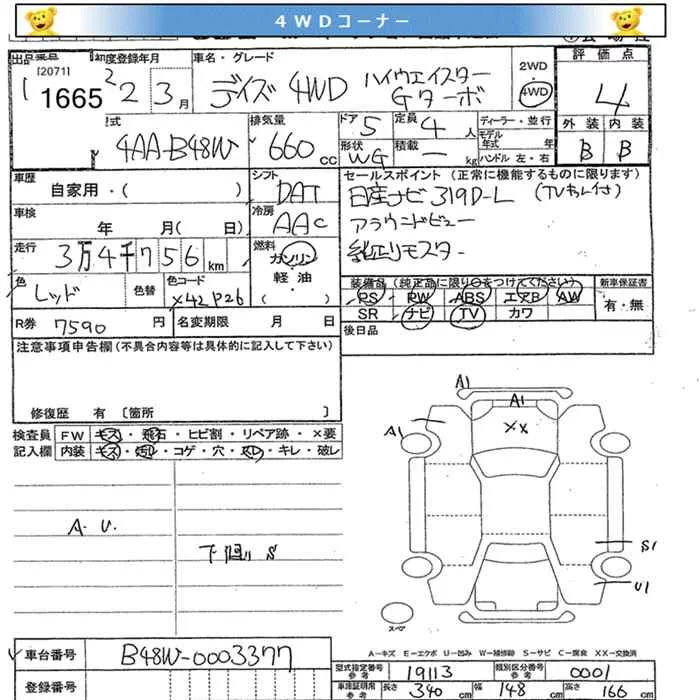 4WDコーナー
出品番号 初度登録年月 車名・グレード 2WD 評価点
[2071]
1665 2 3月 デイズ 4WD ハイウェイスター Gターボ 4WD 4
型式 排気量 ドア 5 定員 4人 ディーラー・並行 外装 内装
4AA-B48W 660cc 形状 WG 積載 ー kg モデル年式 年式 B B
ハンドル 左・右
車歴 シフト セールスポイント (正常に機能するものに限ります)
自家用・( ) DAT 日産ナビ 319D-L (TVキット付)
車検 冷房 アラウンドビュー
年 月( 日) AAC 純正リモスタ
走行 燃料
3万4千756km ガソリン
軽・油
( )
色 色替 色コード 装備品 (純正品に限り○をつけてください) 新車保証書
レッド X42 P26 PS PW ABS エアB AW 有・無
SR ナビ TV カワ
R券 7590円 名変期限 月 日 後日品
注意事項申告欄 (不具合内容等は具体的に記入して下さい)
修復歴 有 〔箇所 〕
検査員 FW キズ・飛石・ヒビ割・リペア跡・×要
記入欄 内装 キズ・汚レ・コゲ・穴・スレ・キレ・破レ
A1
A1
A1
XX
A・U.
下回り S
S1
U1
スペア
A-キズ E-エクボ U-凹み W-補修跡 S-サビ C-腐食 XX-交換済
車台番号 B48W-0003377
型式指定番号 参考 19113 類別区分番号 参考 0001
登録番号
車庫証明用 参考 長さ 340cm 幅 148cm 高さ 166cm